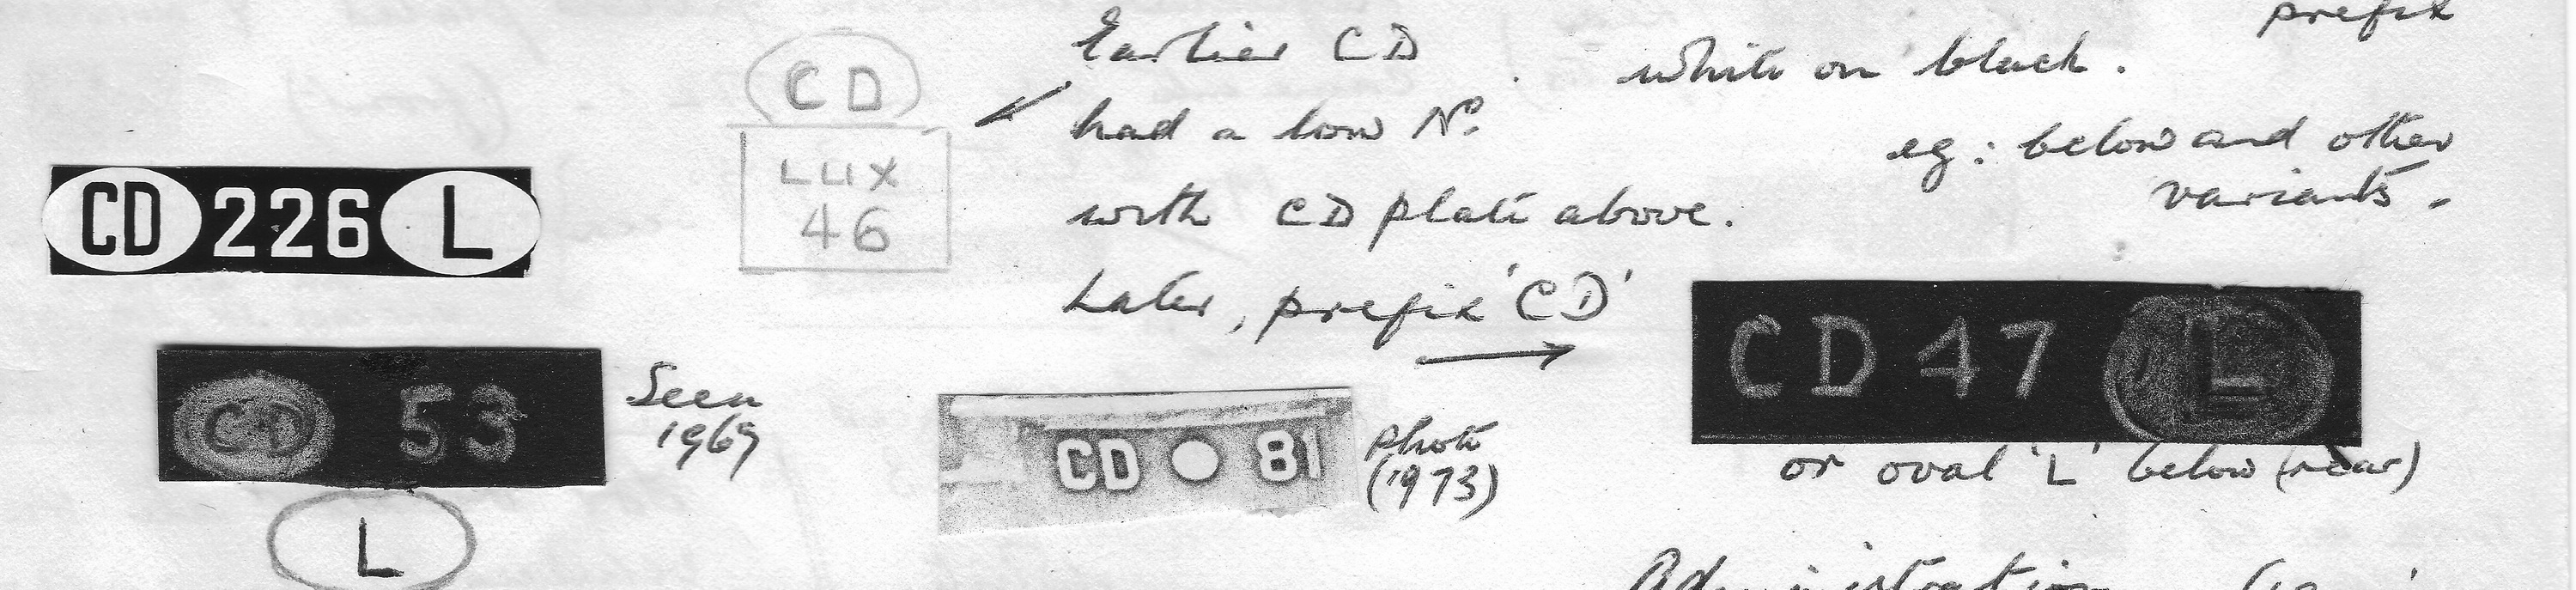 prefix
Earlier CD
white on black.
CD
had a low No.
eg: below and other
variants.
LUX
46
with CD plate above.
CD 226 L
Later, prefix 'CD'
CD 47 L
CD 53
Seen
1969
CD 81
photo
(1973)
or oval 'L' below (rear)
L
Administration